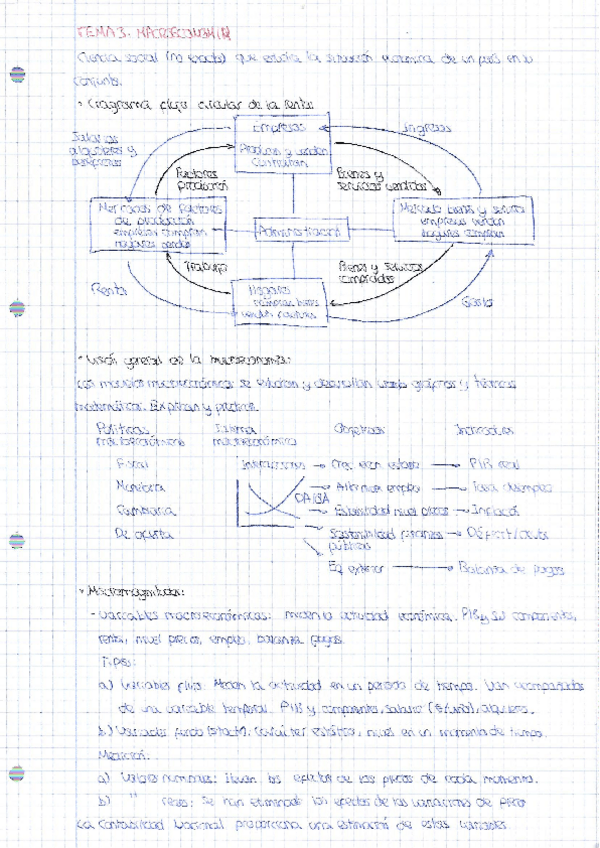 TEMA 3. MACROECONOMÍA
Ciencia social (no exacta) que estudia la situación económica de un país en su
conjunto.
• Diagrama flujo circular de la renta
Empresas
Ingresos
Salarios
alquileres y
beneficios
Producen y venden
Contratan
Factores
producción
Bienes y
servicios vendidos
Mercados de factores
de producción
empresas compran
hogares venden
Administración
Mercado bienes y servicios
empresas venden
hogares compran
Trabajo
Bienes y servicios
comprados
Renta
Hogares
compran bienes
venden
Gasto
• Visión general de la macroeconomía:
Los modelos macroeconómicos se estudian y desarrollan usando gráficos y técnicas
matemáticas. Explican y predicen.
Políticas
macroeconómicas
Sistema
macroeconómico
Objetivos
Indicadores
Fiscal
Interacciones → Crec. → PIB real
Monetaria
DA OA
→ Alto nivel empleo → Tasa desempleo
Cambiaria
→ Estabilidad nivel precios → Inflación
De oferta
Sostenibilidad finanzas → Déficit/deuda
públicas
Eq. exterior → Balanza de pagos
• Macromagnitudes:
- Variables macroeconómicas: miden la actividad económica. PIB y sus componentes,
renta, nivel precios, empleo, balanza pagos.
Tipos:
a) Variables flujo: Miden la actividad en un periodo de tiempo. Van acompañadas
de una variable temporal. PIB y componentes, salario (€/año), alquileres.
b) Variables fondo (stock): carácter estático, miden en un momento de tiempo.
Medición:
a) Valores nominales: llevan los efectos de los precios de cada momento.
b) " reales: Se han eliminado los efectos de las variaciones de precio
La Contabilidad Nacional proporciona una estimación de estas variables